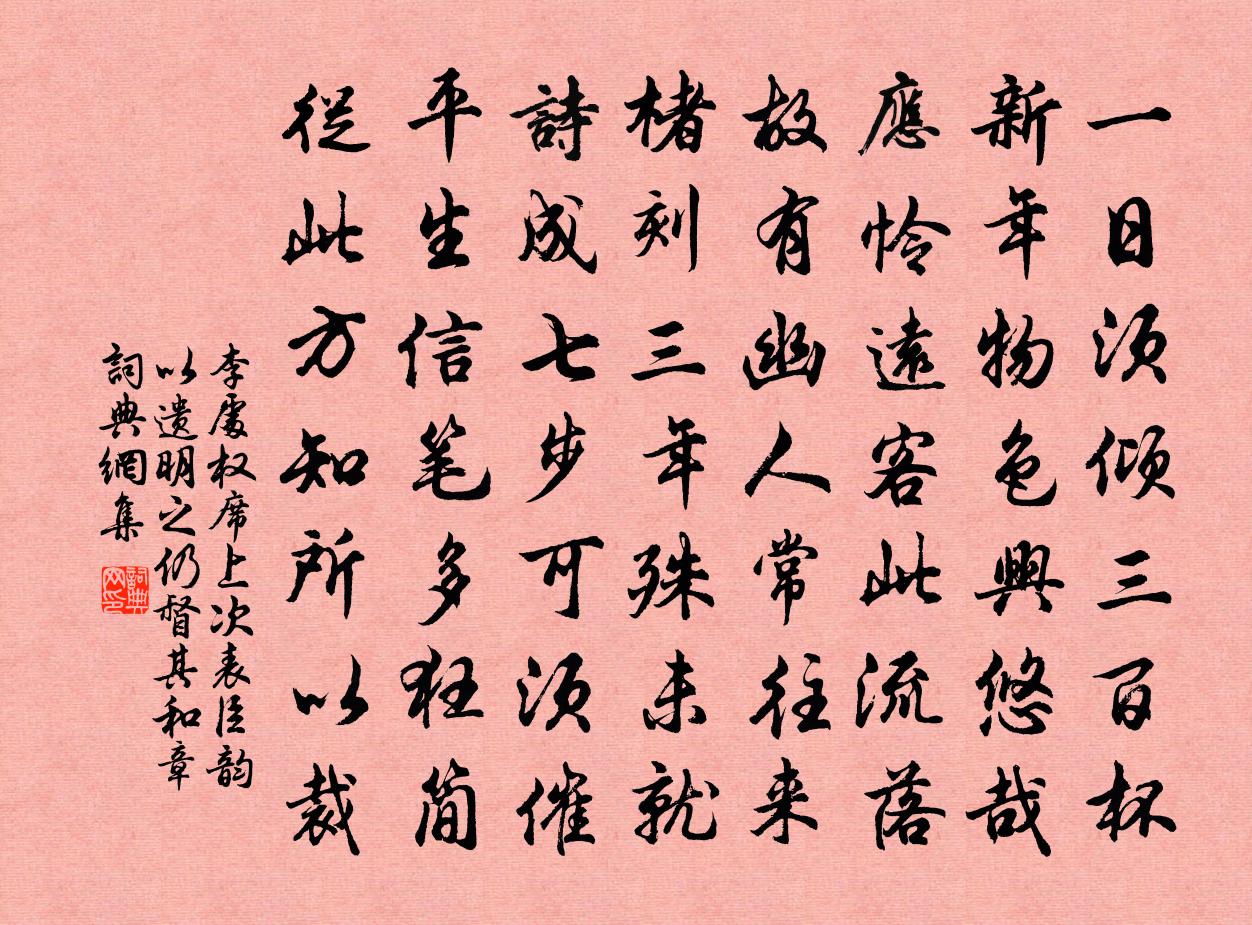 一日須傾三百杯
新年物色興悠哉
應憐遠客此流落
故有幽人常往来
楮刻三年殊未就
詩成七步可須催
平生信笔多狂简
從此方知所以裁
李處权席上次表臣韵
以遗明之仍督其和章
詞典網集
詞典网印